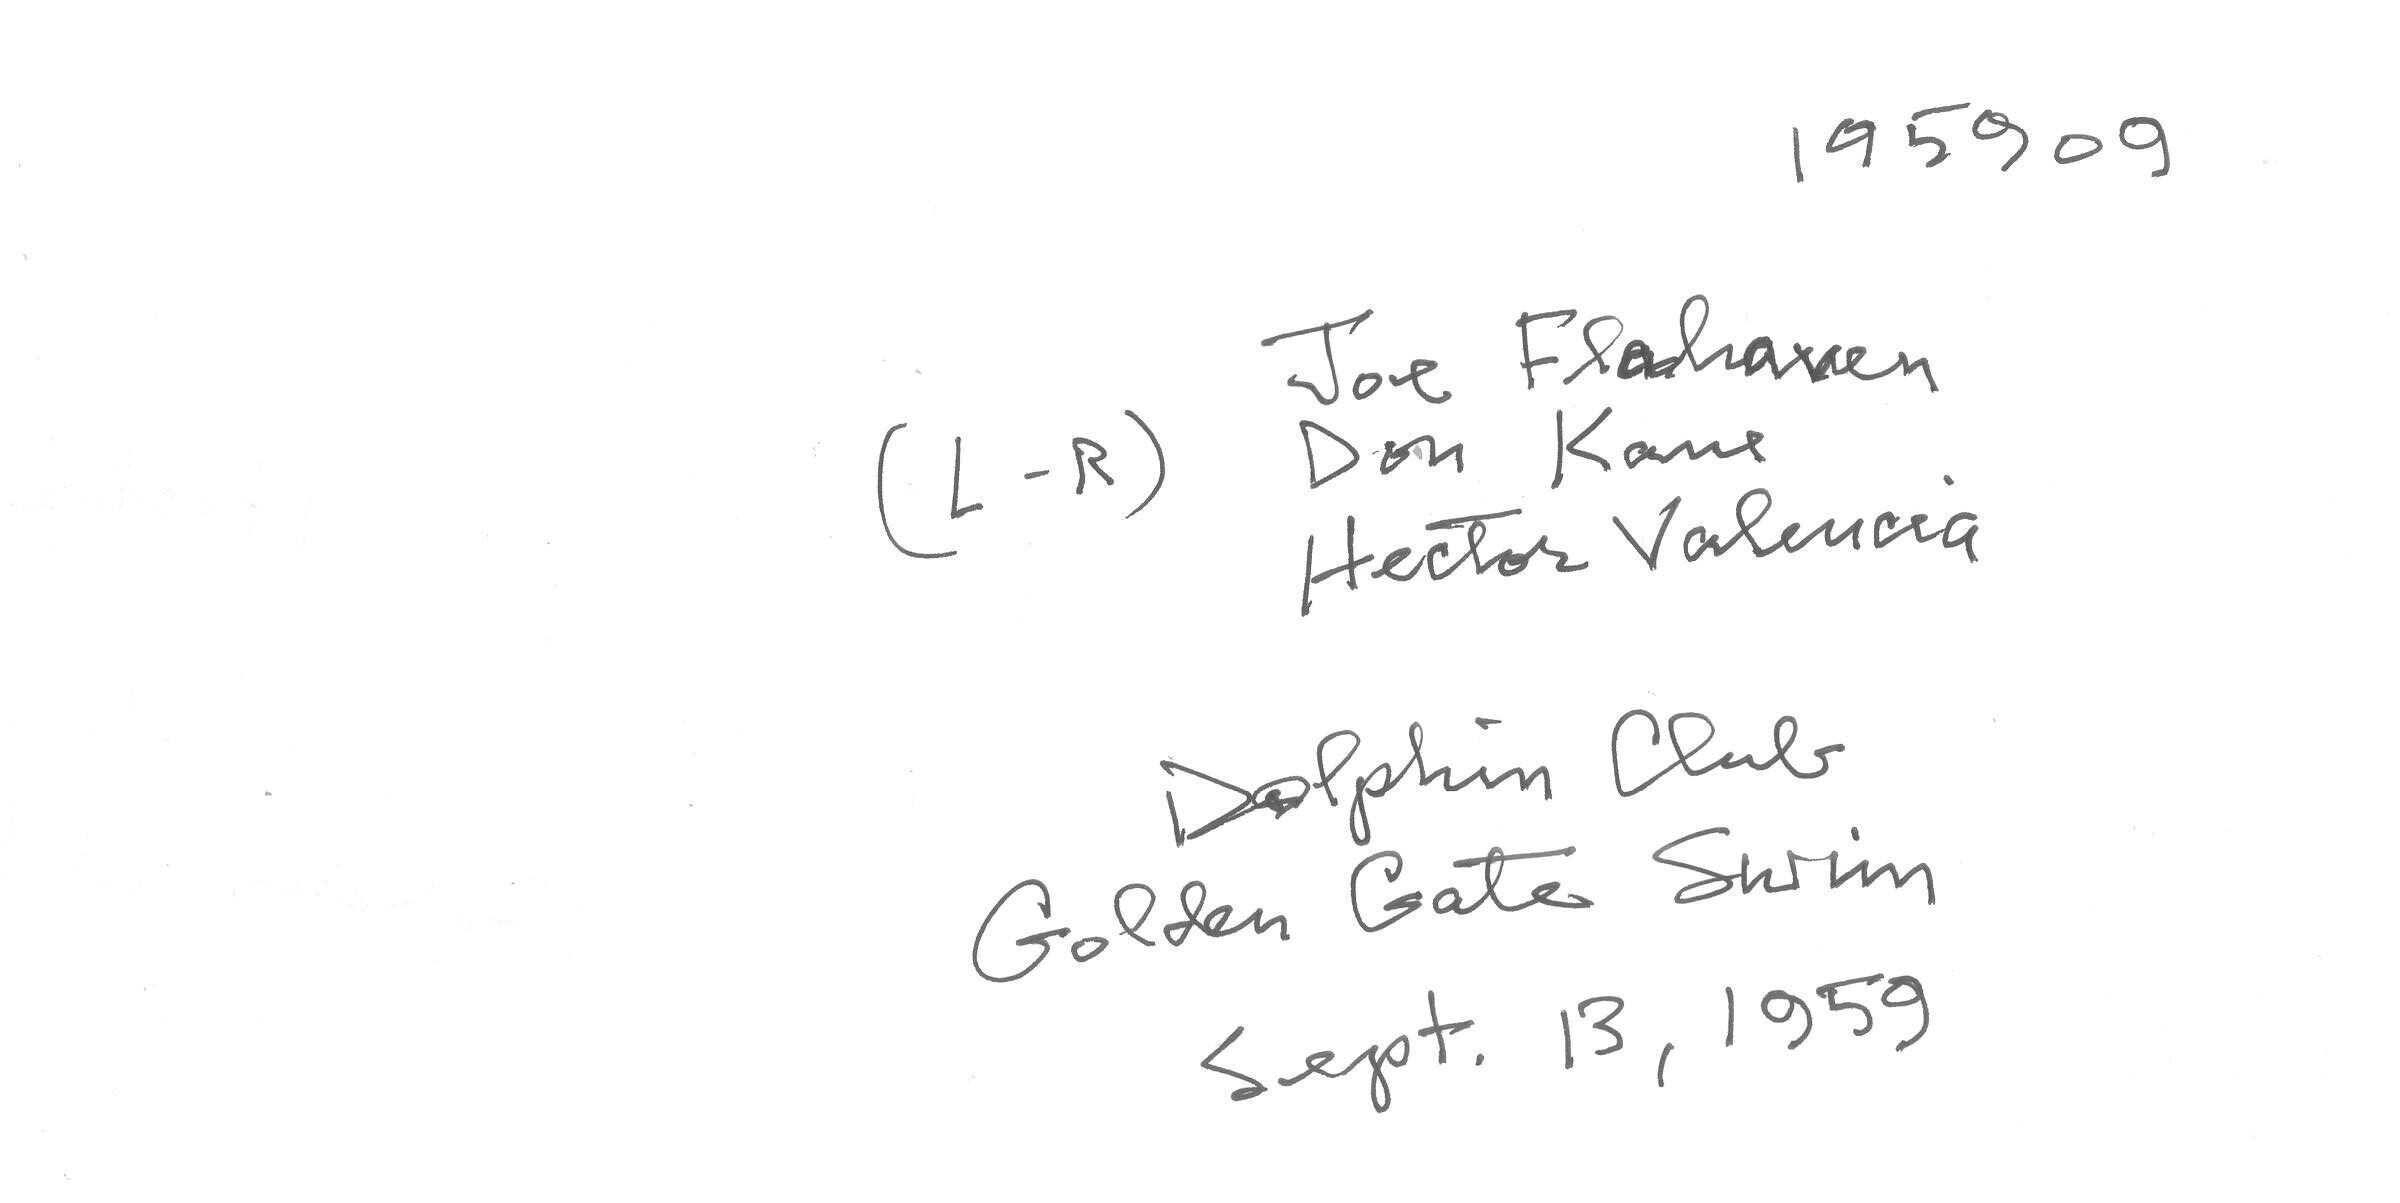 195909
Joe Flahaven
(L-R) Don Kane
Hector Valencia
Dolphin Club
Golden Gate Swim
Sept. 13, 1959